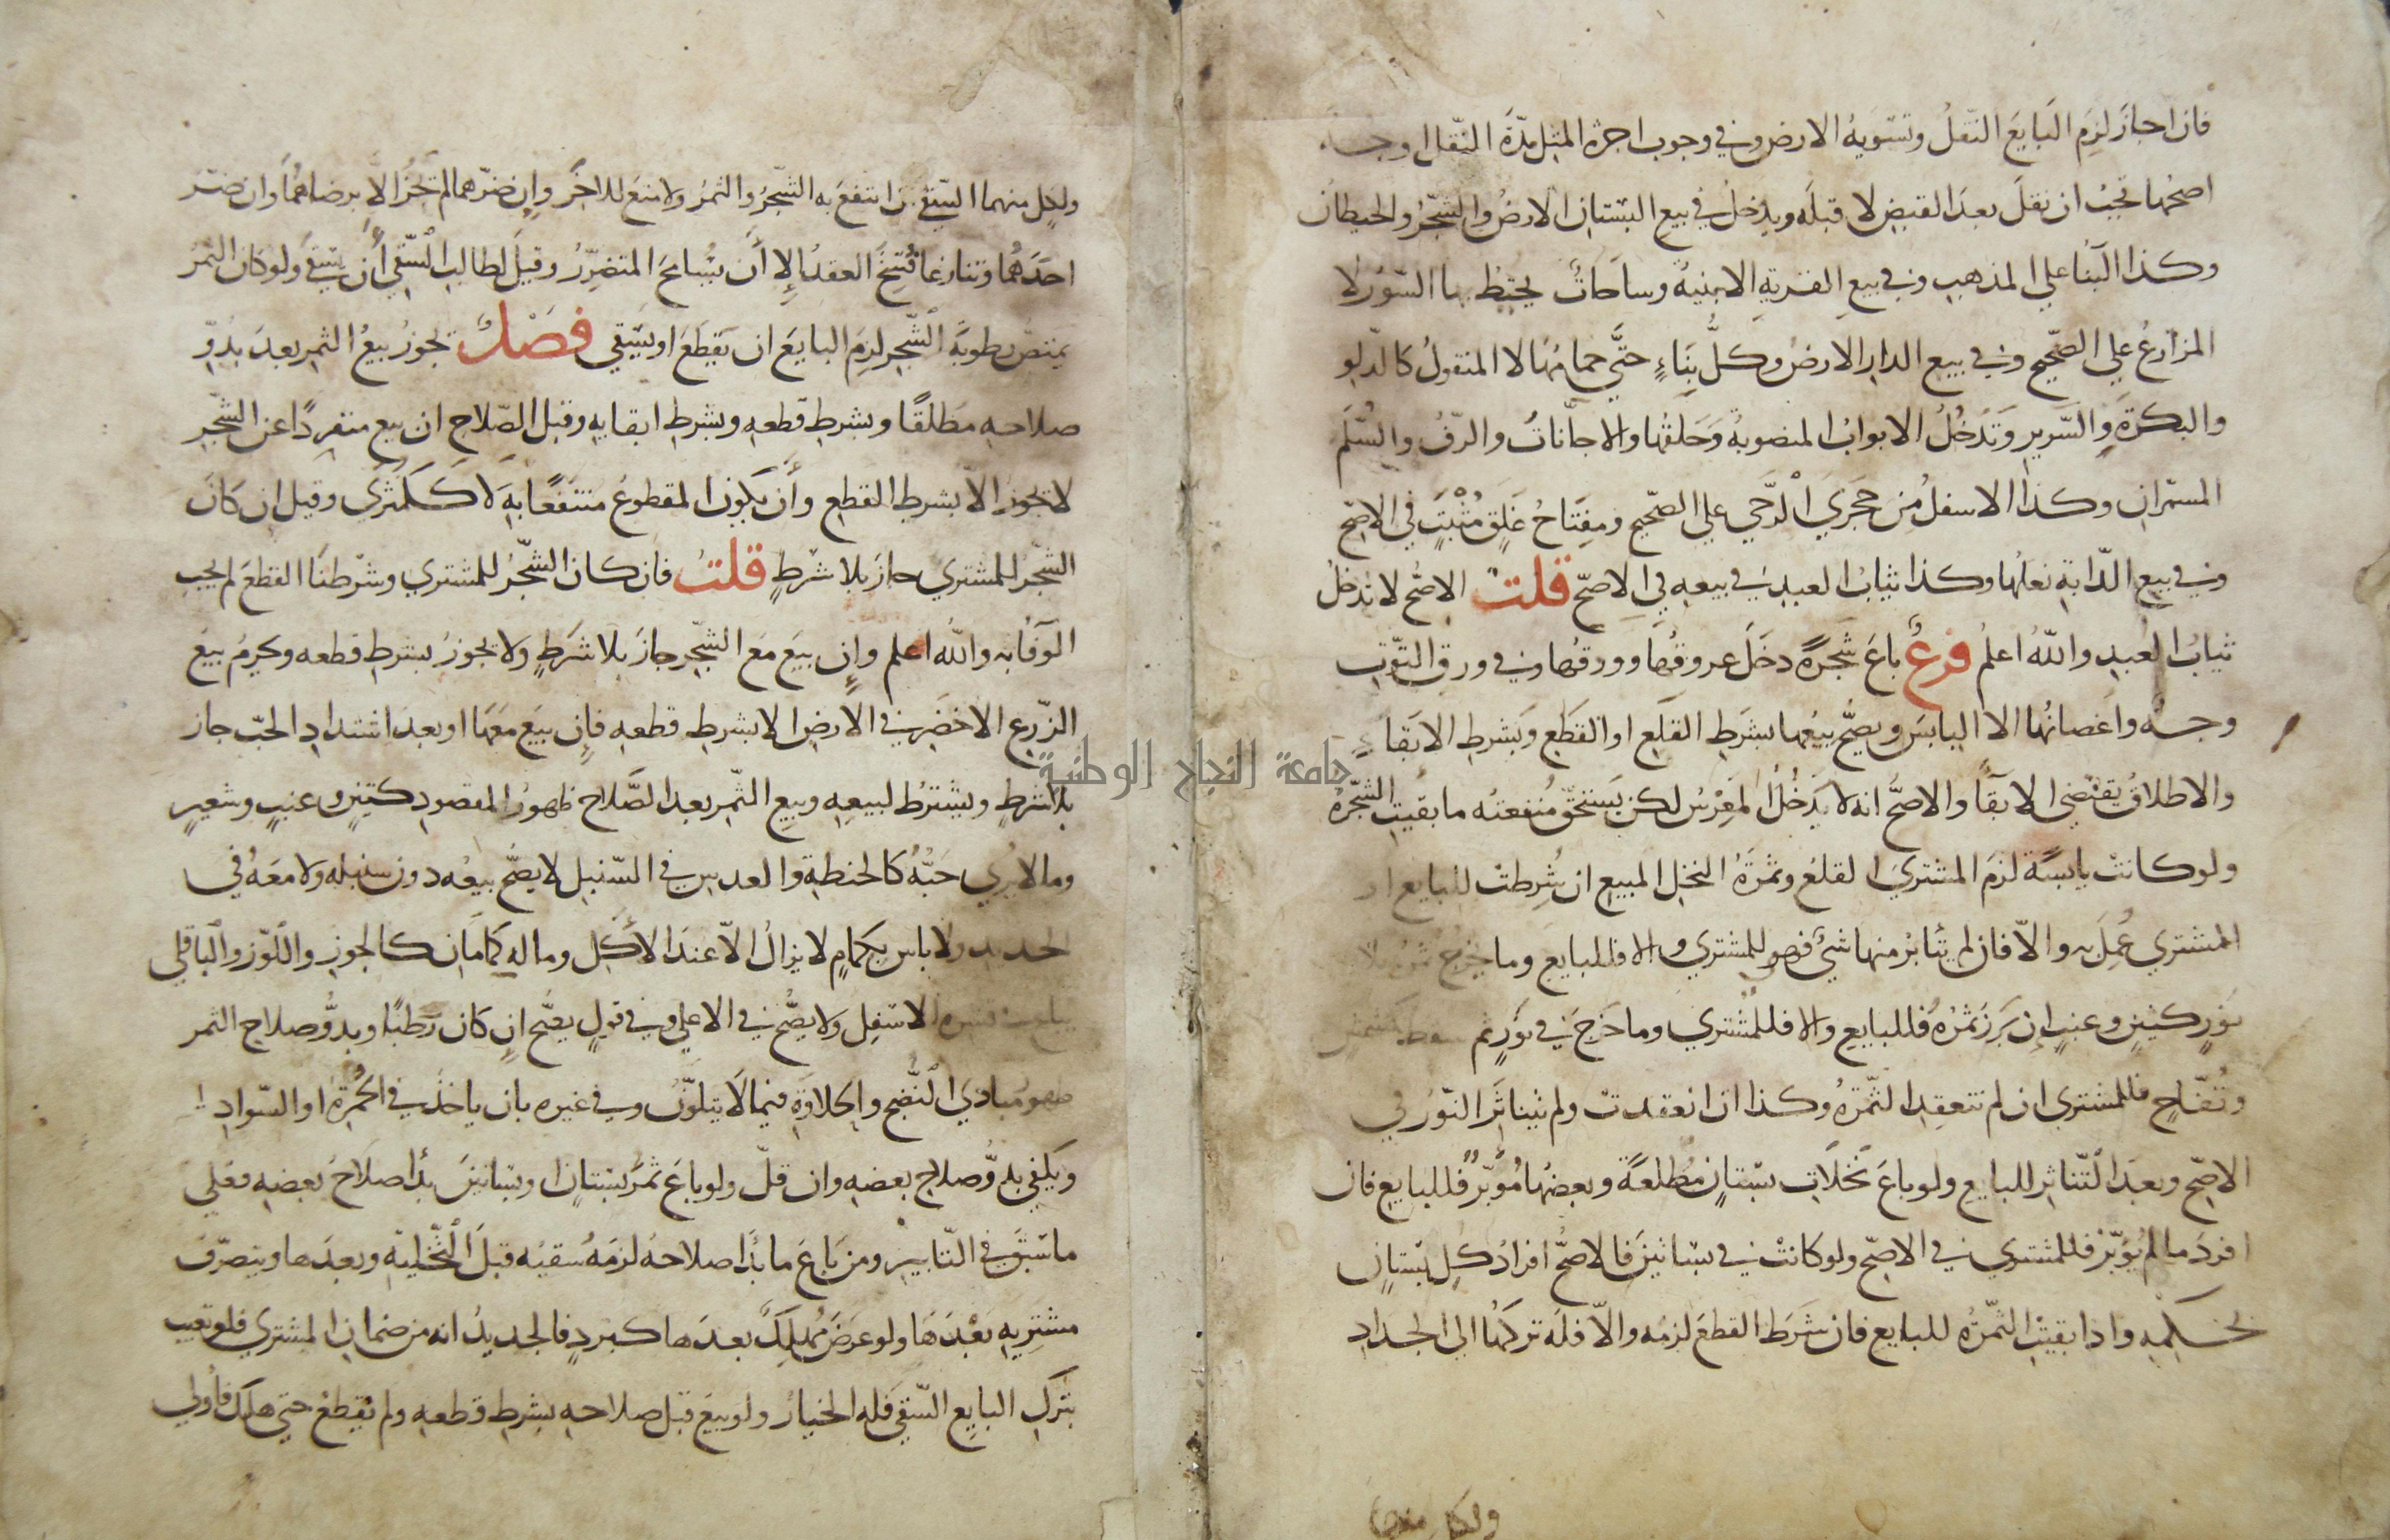 فان اجاز لزم البايع النقل وتسوية الارض وفي وجوب اجرة المثل مدة النقل اوجه
اصحها تجب ان نقل بعد القبض لا قبله ويدخل في بيع البستان الارض والشجر والحيطان
وكذا البنا علي المذهب وفي بيع القرية الابنية وساحات يحيط بها السور لا
المزارع علي الصحيح وفي بيع الدار الارض وكل بناء حتي حمامها لا المنقول كالدلو
والبكرة والسرير وتدخل الابواب المنصوبة وحلقها والاجانات والرف والسلم
المسمران وكذا الاسفل من حجري الرحي علي الصحيح ومفتاح غلق مثبت في الاصح
وفي بيع الدابة نعلها وكذا ثياب العبد في بيعه في الاصح قلت الاصح لا تدخل
ثياب العبد والله اعلم فرع باع شجرة دخل عروقها وورقها وفي ورق التوت
وجه واغصانها الا اليابس ويصح بيعها بشرط القلع او القطع وبشرط الابقاء
والاطلاق يقتضي الابقا والاصح انه لا يدخل المغرس لكن يستحق منفعته ما بقيت الشجرة
ولو كانت يابسة لزم المشتري القلع وثمرة النخل المبيع ان شرطت للبايع او
المشتري عمل به والا فان لم يتابر منها شي فهو للمشتري والا فللبايع وما يخرج ثمره بلا
نور كتين وعنب ان برز ثمره فللبايع والا فللمشتري وما خرج في نور ثم سقط كمشمش
وتفاح فللمشتري ان لم تنعقد الثمرة وكذا ان انعقدت ولم يتناثر النور في
الاصح وبعد التناثر للبايع ولو باع نخلات بستان مطلعة وبعضها مؤبر فللبايع فان
افرد ما لم يؤبر فللمشتري في الاصح ولو كانت في بساتين فالاصح افراد كل بستان
بحكمه واذا بقيت الثمرة للبايع فان شرط القطع لزمه والا فله تركها الي الجداد
ولكل منهما
ولكل منهما السقي ان انتفع به الشجر والثمر ولا منع للاخر وان ضرهما لم تجز الا برضاهما وان ضر
احدهما وتنازعا فسخ العقد الا ان يسامح المتضرر وقيل لطالب السقي أن يسقي ولو كان الثمر
يمتص رطوبة الشجر لزم البايع ان يقطع او يسقي فصل يجوز بيع الثمر بعد بدو
صلاحه مطلقا وبشرط قطعه وبشرط ابقايه وقبل الصلاح ان بيع منفردا عن الشجر
لا يجوز الا بشرط القطع وأن يكون المقطوع منتفعا به لا ككمثري وقيل ان كان
الشجر للمشتري جاز بلا شرط قلت فان كان الشجر للمشتري وشرطنا القطع لم يجب
الوفا به والله اعلم وان بيع مع الشجر جاز بلا شرط ولا يجوز بشرط قطعه ويحرم بيع
الزرع الاخضر في الارض الا بشرط قطعه فان بيع معها او بعد اشتداد الحب جاز
بلا شرط ويشترط لبيعه وبيع الثمر بعد الصلاح ظهور المقصود كتين وعنب وشعير
وما لا يري حبه كالحنطة والعدس في السنبل لا يصح بيعه دون سنبله ولا معه في
الجديد ولا باس بكمام لا يزال الا عند الأكل وما له كمامان كالجوز واللوز والباقلي
يباع في قشره الاسفل ولا يصح في الاعلي وفي قول يصح ان كان رطبا وبدو صلاح الثمر
ظهور مبادي النضج والحلاوة فيما لا يتلون وفي غيره بان ياخذ في الحمرة او السواد
ويكفي بدو صلاح بعضه وان قل ولو باع ثمر بستان او بساتين بدا صلاح بعضه فعلي
ما سبق في التابير ومن باع ما بدا صلاحه لزمه سقيه قبل التخلية وبعدها ويتصرف
مشتريه بعدها ولو عرض مهلك بعدها كبرد فالجديد انه من ضمان المشتري فلو تعيب
بترك البايع السقي فله الخيار ولو بيع قبل صلاحه بشرط قطعه ولم يقطع حتي هلك فاولي
جامعة النجاح الوطنية